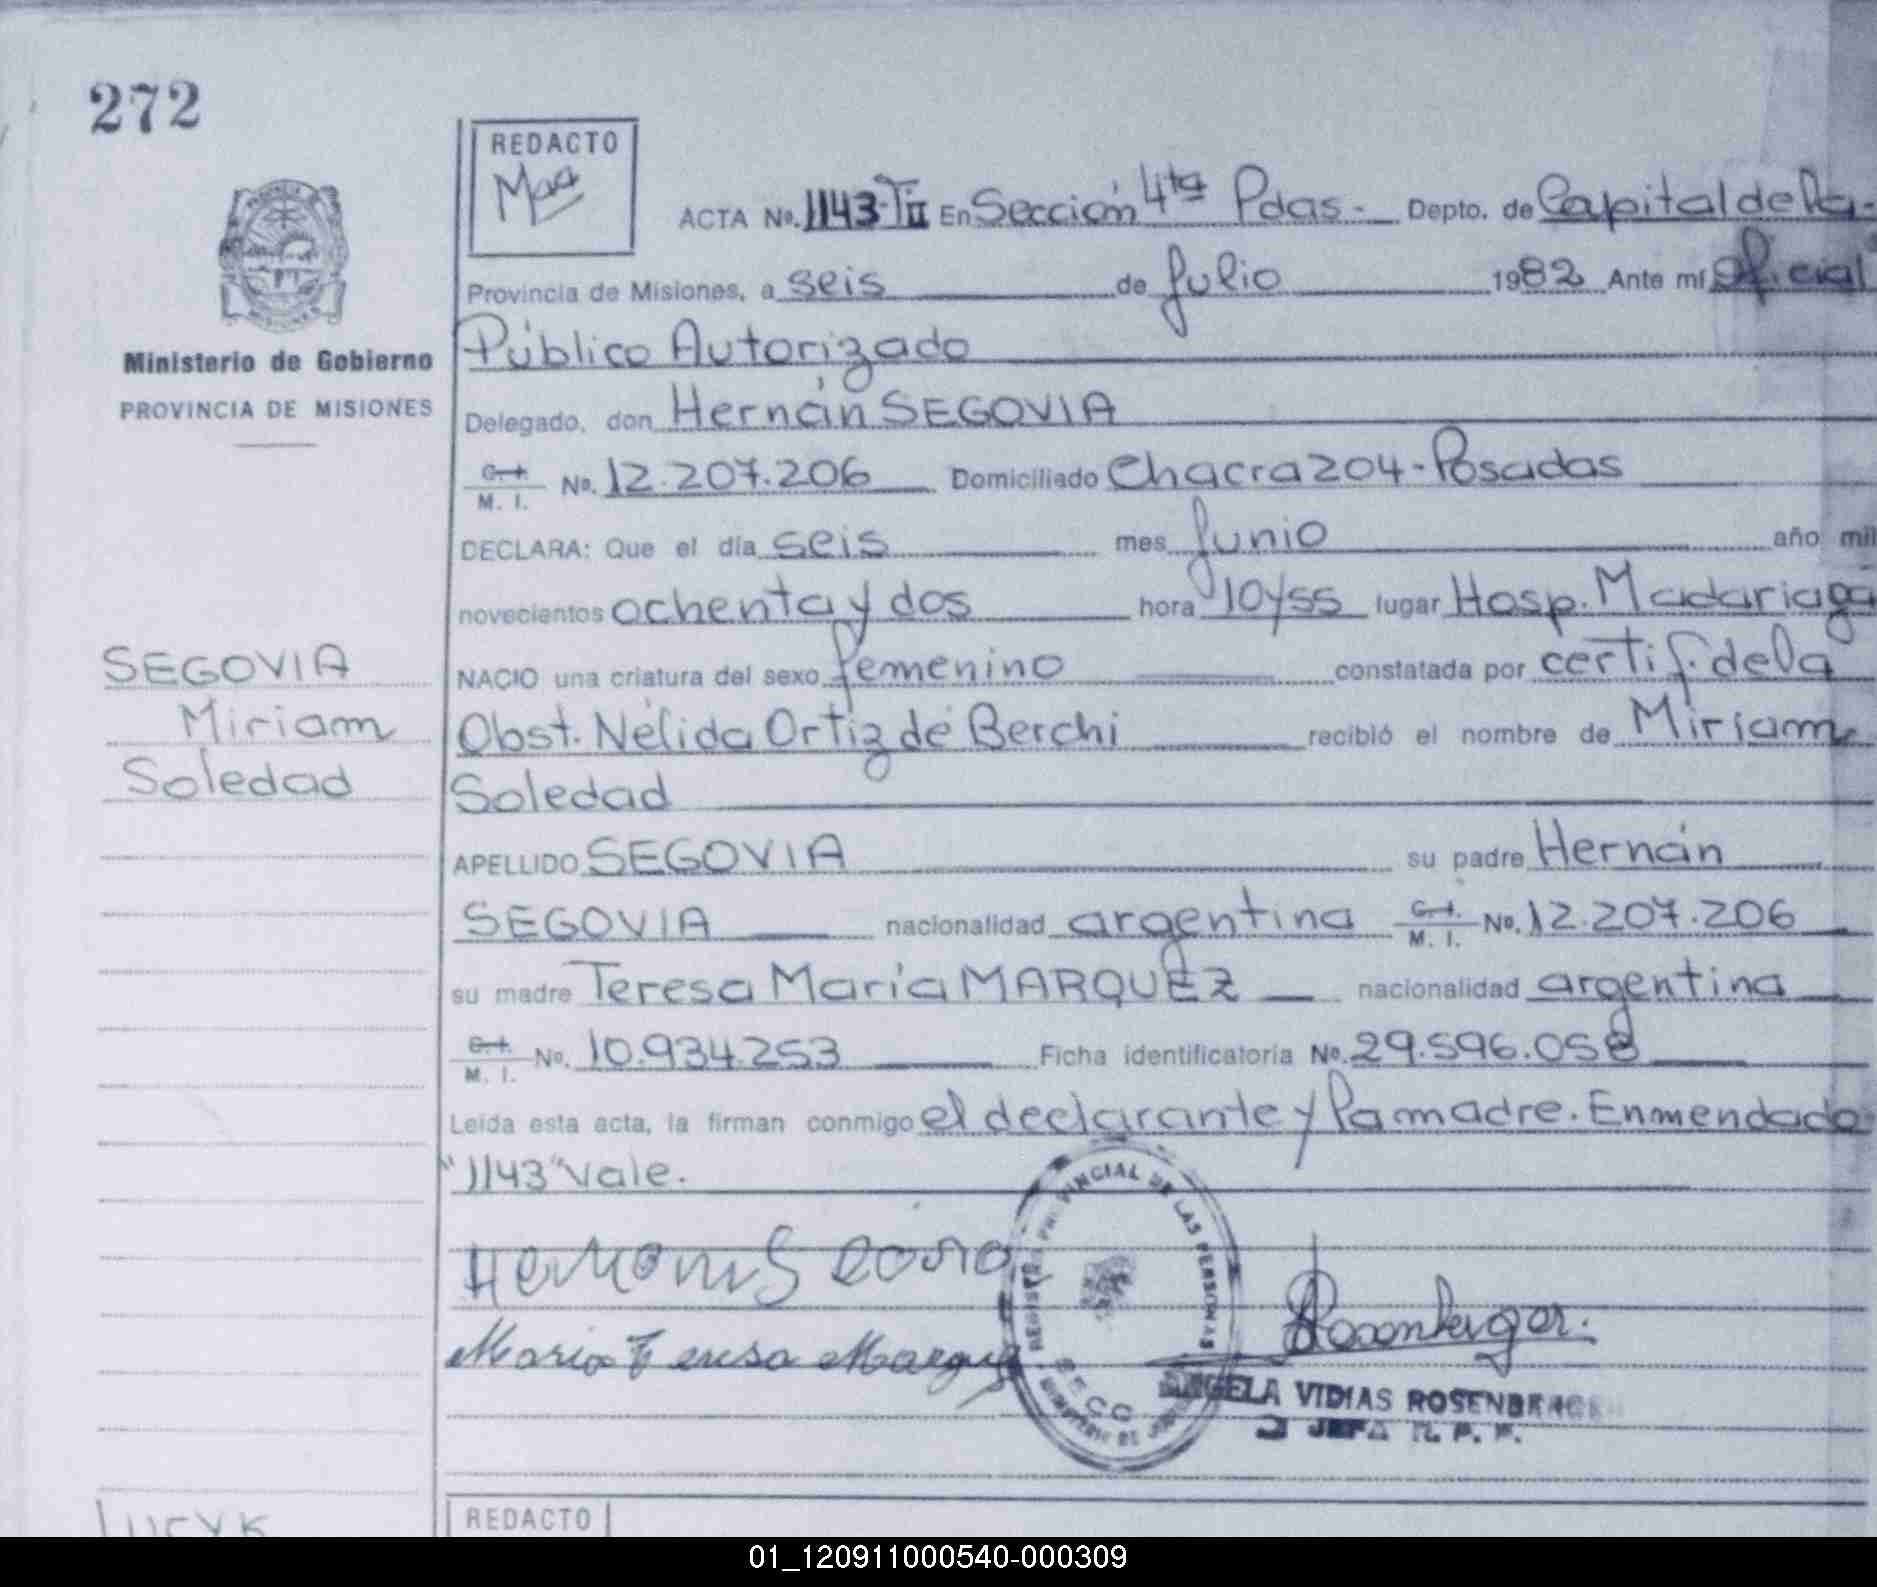 272
REDACTO
ACTA Nº. 1143-TII En Sección 4ta Pdas.- Depto. de Capital de la.-
Provincia de Misiones, a seis de Julio 1982 Ante mí Oficial
Público Autorizado
Delegado, don Hernán SEGOVIA
C. I. M. I. Nº. 12.207.206 Domiciliado Chacra 204-Posadas
DECLARA: Que el día seis mes Junio año mil
novecientos ochenta y dos hora 10y55 lugar Hosp. Madariaga
NACIO una criatura del sexo femenino constatada por certif. de la
Obst. Nélida Ortiz de Berchi recibió el nombre de Miriam
Soledad
APELLIDO SEGOVIA su padre Hernán
SEGOVIA nacionalidad argentina C. I. M. I. Nº. 12.207.206
su madre Teresa María MARQUEZ nacionalidad argentina
C. I. M. I. Nº. 10.934.253 Ficha identificatoria Nº. 29.596.058
Leída esta acta, la firman conmigo el declarante y la madre. Enmendado
"1143" vale.
PROVINCIA
MISIONES
Ministerio de Gobierno
PROVINCIA DE MISIONES
SEGOVIA
Miriam
Soledad
Maria Teresa Marquez
REGISTRO PROVINCIAL DE LAS PERSONAS
Rosenberger.
ANGELA VIDIAS ROSENBERGER
JEFA
REDACTO
01_120911000540-000309